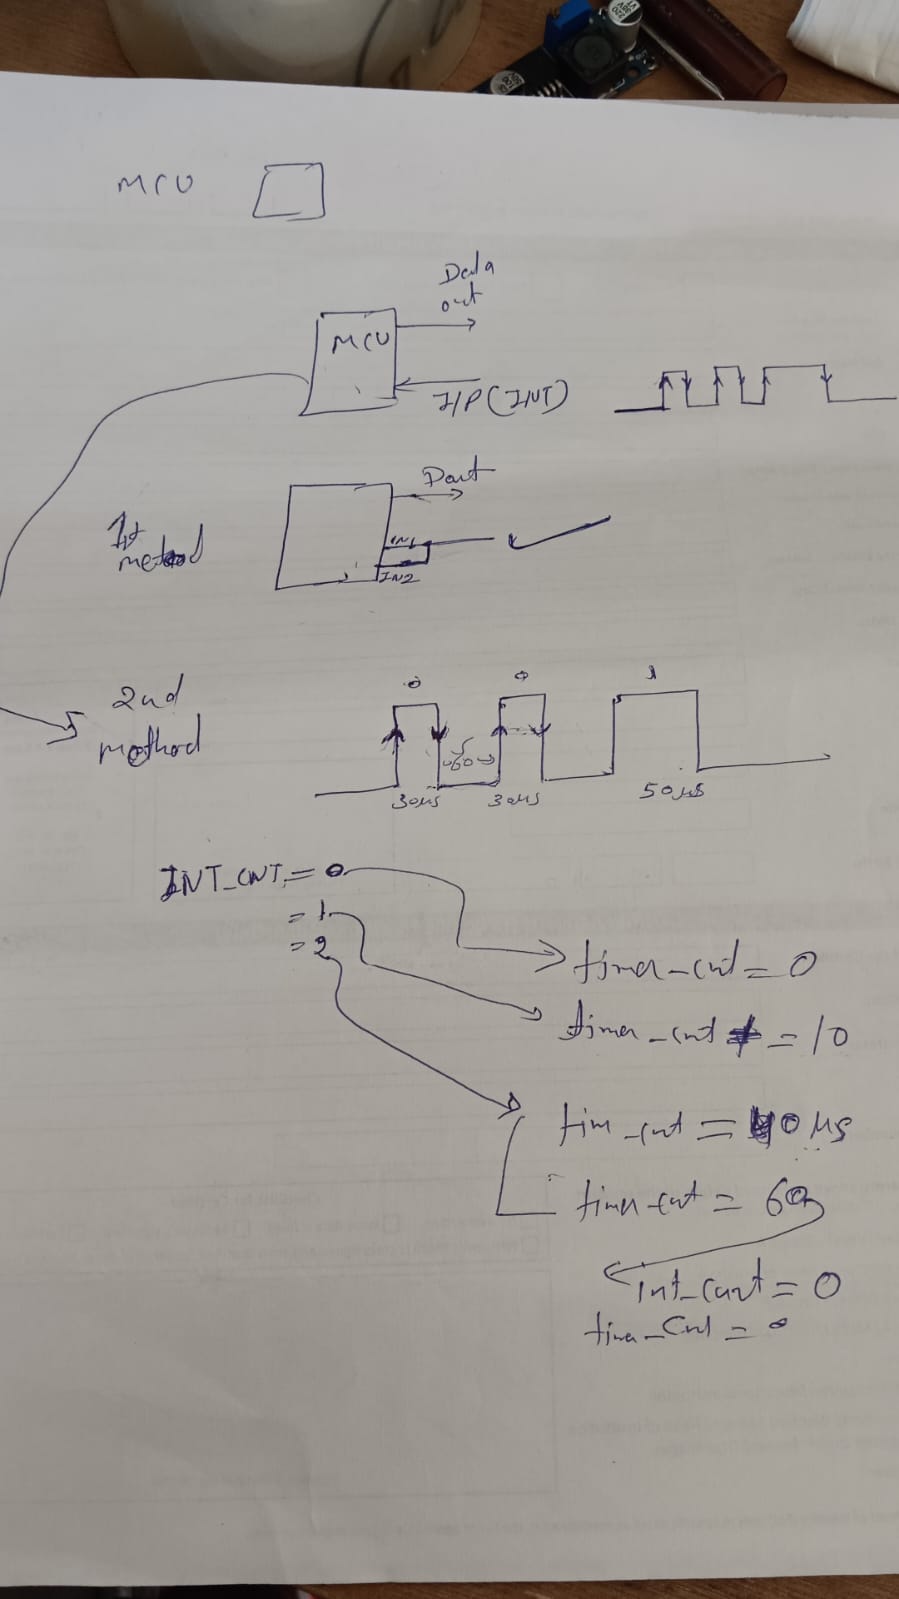 MCU
Data
out
MCU
I/P (INT)
Dout
1st
method
IN1
IN2
2nd
method
0 0 1
60
30µs 30µs 50µs
INT_CNT = 0
= 1
= 2
timer_cnt = 0
timer_cnt = 10
tim_cnt = 40 µs
timer_cnt = 60
int_cunt = 0
timer_cnt = 0